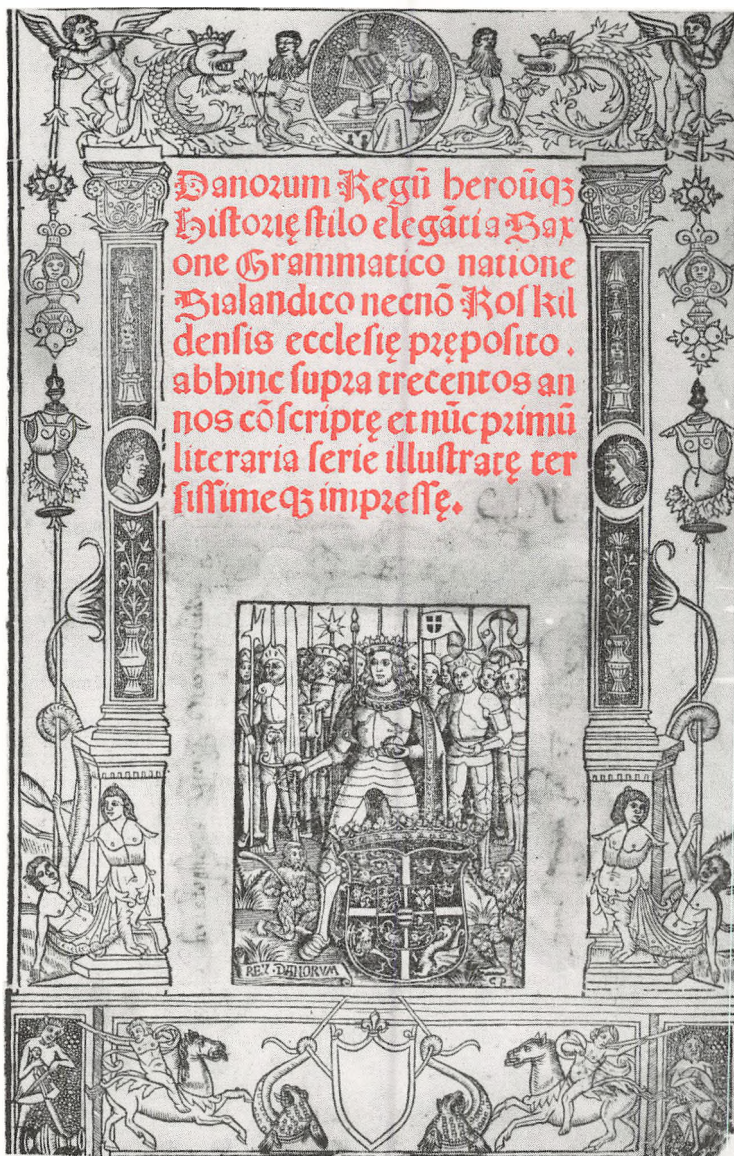 Danorum Regū heroūqꝫ
historię stilo elegāti a Sax
one Grammatico natione
Sialandico necnō Roskil
densis ecclesię pręposito.
abhinc supra trecentos an
nos cōscriptę et nūc primū
literaria serie illustratę ter
sissimeqꝫ impressę.
REX DANORVM